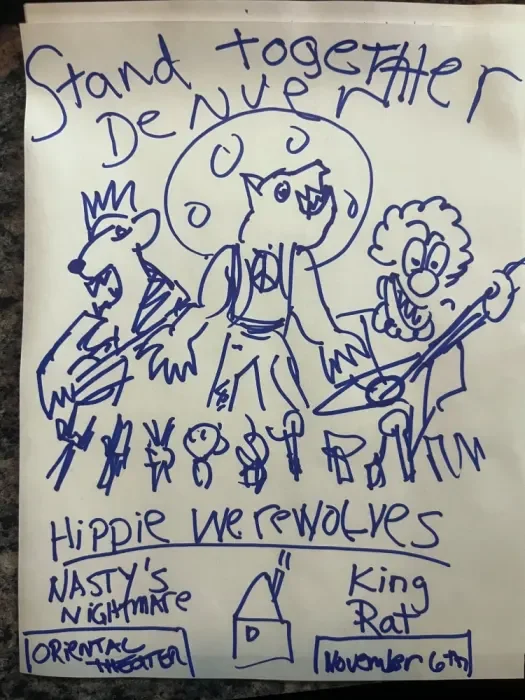 Stand togeTHer
DeNVer
Hippie WerewoLves
NASTY'S
NIGHTMARE
King
Rat
D
ORIENTAL
THEATER
November 6TH